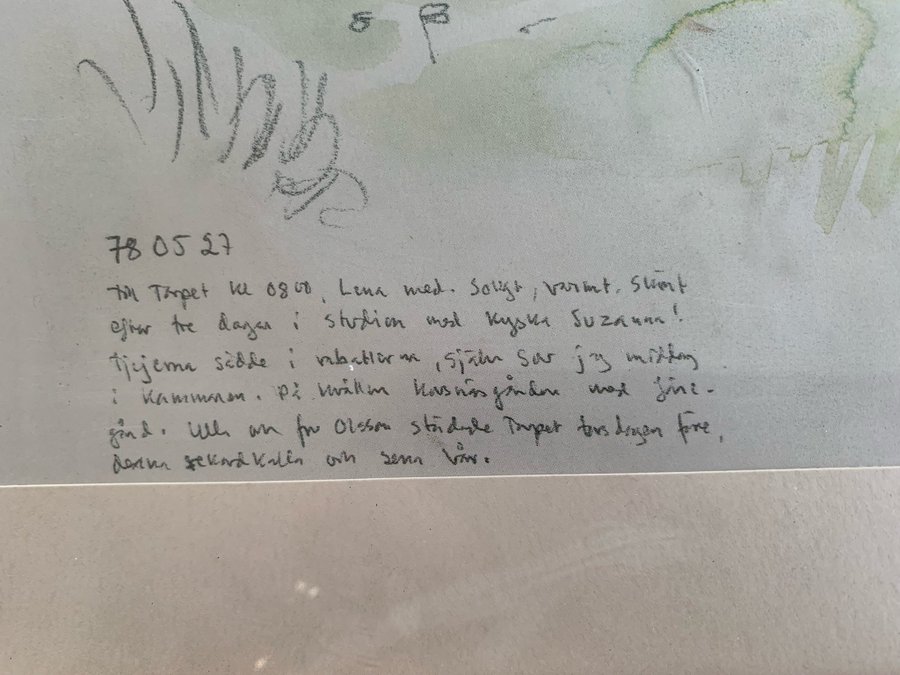 78 05 27
Till Torpet kl 0800, Lena med. Soligt, varmt. Skönt
efter tre dagar i studion med Kyska Suzanna!
Tjejerna sådde i rabatterna, själv sov jag middag
i kammaren. På kvällen med
gård. fru Olsson städade Torpet torsdagen före,
denna rekordkalla och sena vår.